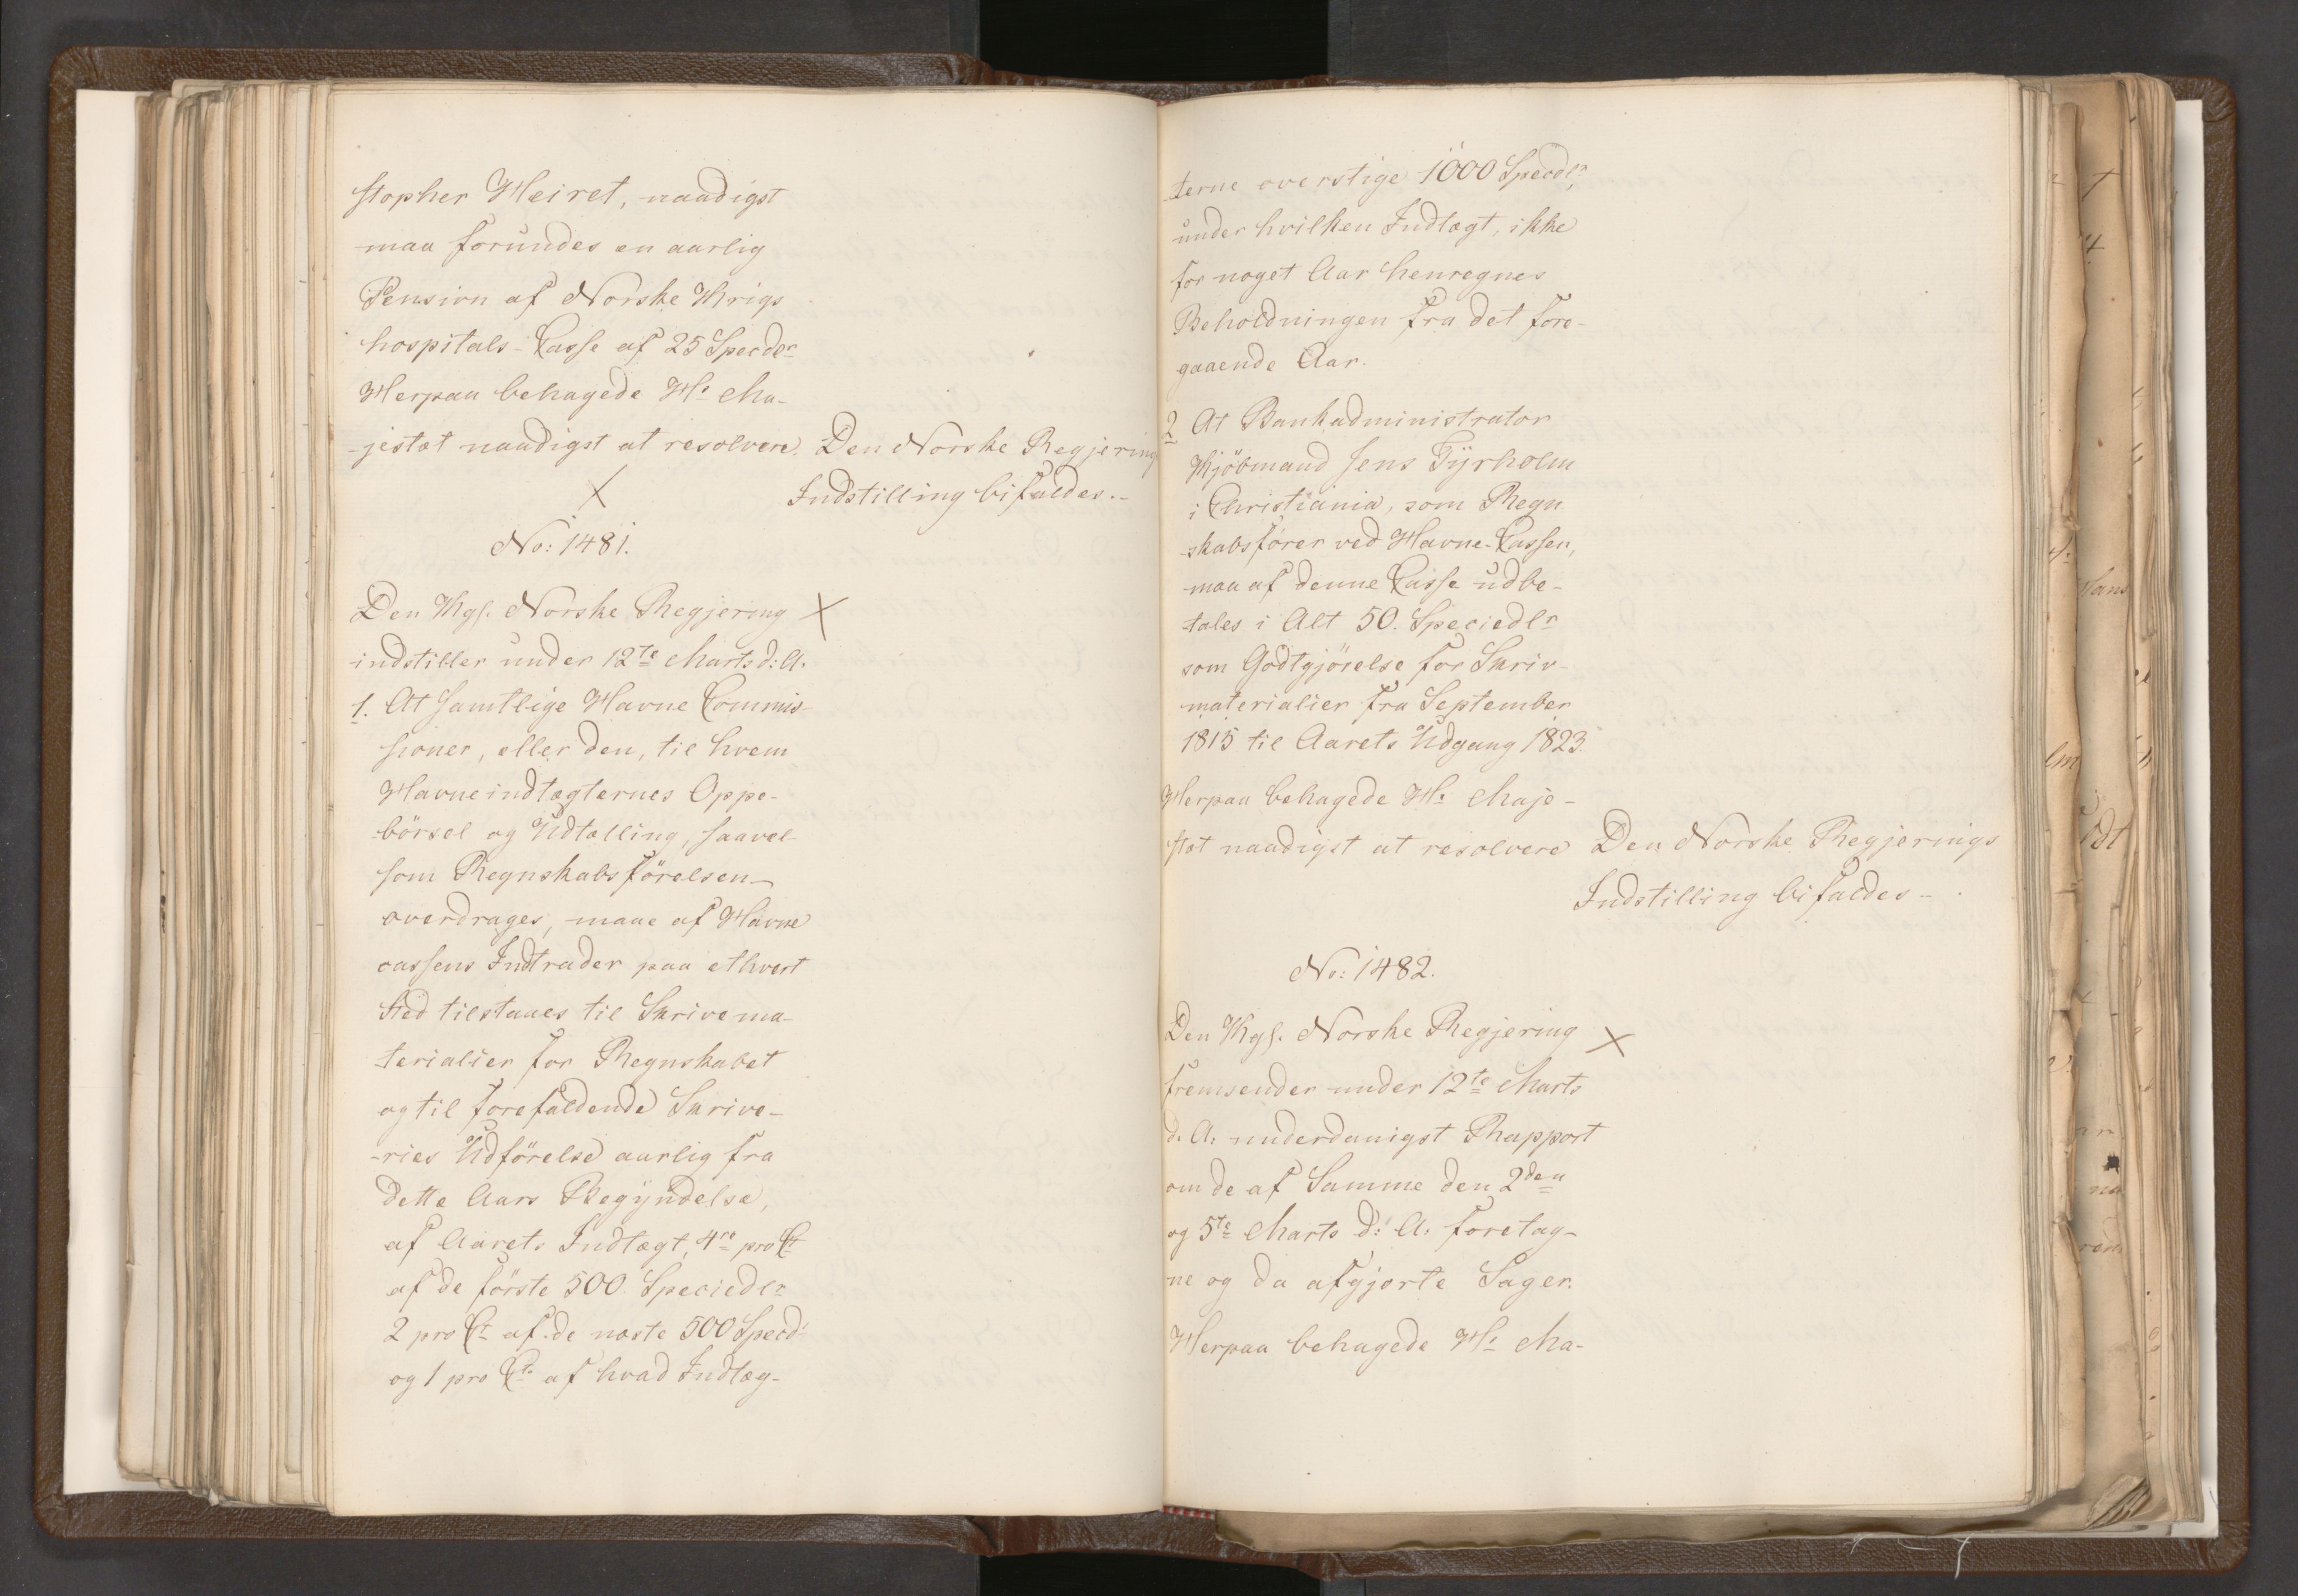 stopher Heiret, naadigst
maa forundes en aarlig
Pension af Norske Krigs
hospitals-Casse af 25 Specdlr
Herpaa behagede Hs. Ma-
jestæt naadigst at resolvere. Den Norske Regjering
Indstilling bifaldes.-
No: 1481.
Den Kgl. Norske Regjering
indstiller under 12te Marts d: A.
1. At samtlige Havne Commis-
sioner, eller den, til hvem
Havneindtægternes Oppe-
börsel og Udtælling, saavel-
som Regnskabsförelsen
overdrages, maae af Havne
cassens Indtrader paa ethvert
Sted tilstaaes til Skrivema-
terialier for Regnskabet
og til forefaldende Skrive-
-ries Udförelse aarlig fra
dette Aars Begyndelse,
af Aarets Indtægt, 4re pro Ct
af de förste 500 Speciedlr
2 pro Ct af de næste 500 Specd
og 1 pro Ct. af hvad Indtæg-
terne overstige 1000 Specdlr,
under hvilken Indtægt, ikke
for noget Aar henregnes
Beholdningen fra det fore-
gaaende Aar.
2 At Bankadministrator
Kjöbmand Jens Tyrholm
i Christiania, som Regn
skabsförer ved Havne-Cassen,
maa af denne Casse udbe-
tales i Alt 50. Speciedlr
som Godtgjörelse for Skriv-
materialier fra September
1815 til Aarets Udgang 1823.
Herpaa behagede Hs. Maje-
stæt naadigst at resolvere Den Norske Regjerings
Indstilling bifaldes-
No: 1482.
Den Kgl. Norske Regjering
fremsender under 12te Marts
d. A: underdanigst Rapport
om de af Samme den 2den
og 5te Marts d: A. foretag-
ne og da afgjorte Sager.
Herpaa behagede Hs. Ma-